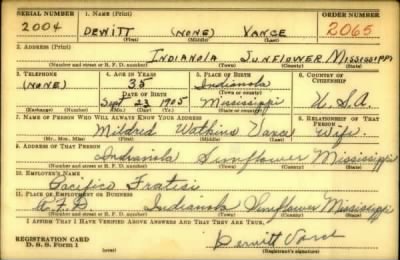 SERIAL NUMBER 1. NAME (Print) ORDER NUMBER
2004 DEWITT (NONE) VANCE 2065
(First) (Middle) (Last)
2. ADDRESS (Print)
INDIANOLA SUNFLOWER MISSISSIPPI
(Number and street or R. F. D. number) (Town) (County) (State)
3. TELEPHONE 4. AGE IN YEARS 5. PLACE OF BIRTH 6. COUNTRY OF CITIZENSHIP
(NONE) 35 Indianola
DATE OF BIRTH (Town or county)
Sept 23 1905 Mississippi U.S.A.
(Exchange) (Number) (Mo.) (Day) (Yr.) (State or country)
7. NAME OF PERSON WHO WILL ALWAYS KNOW YOUR ADDRESS 8. RELATIONSHIP OF THAT PERSON
Mildred Watkins Vance Wife
(Mr., Mrs., Miss) (First) (Middle) (Last)
9. ADDRESS OF THAT PERSON
Indianola Sunflower Mississippi
(Number and street or R. F. D. number) (Town) (County) (State)
10. EMPLOYER'S NAME
Pacifico Fratesi
11. PLACE OF EMPLOYMENT OR BUSINESS
R.F.D. Indianola Sunflower Mississippi
(Number and street or R. F. D. number) (Town) (County) (State)
I AFFIRM THAT I HAVE VERIFIED ABOVE ANSWERS AND THAT THEY ARE TRUE.
REGISTRATION CARD
D. S. S. Form 1 Vance
(Registrant's signature)